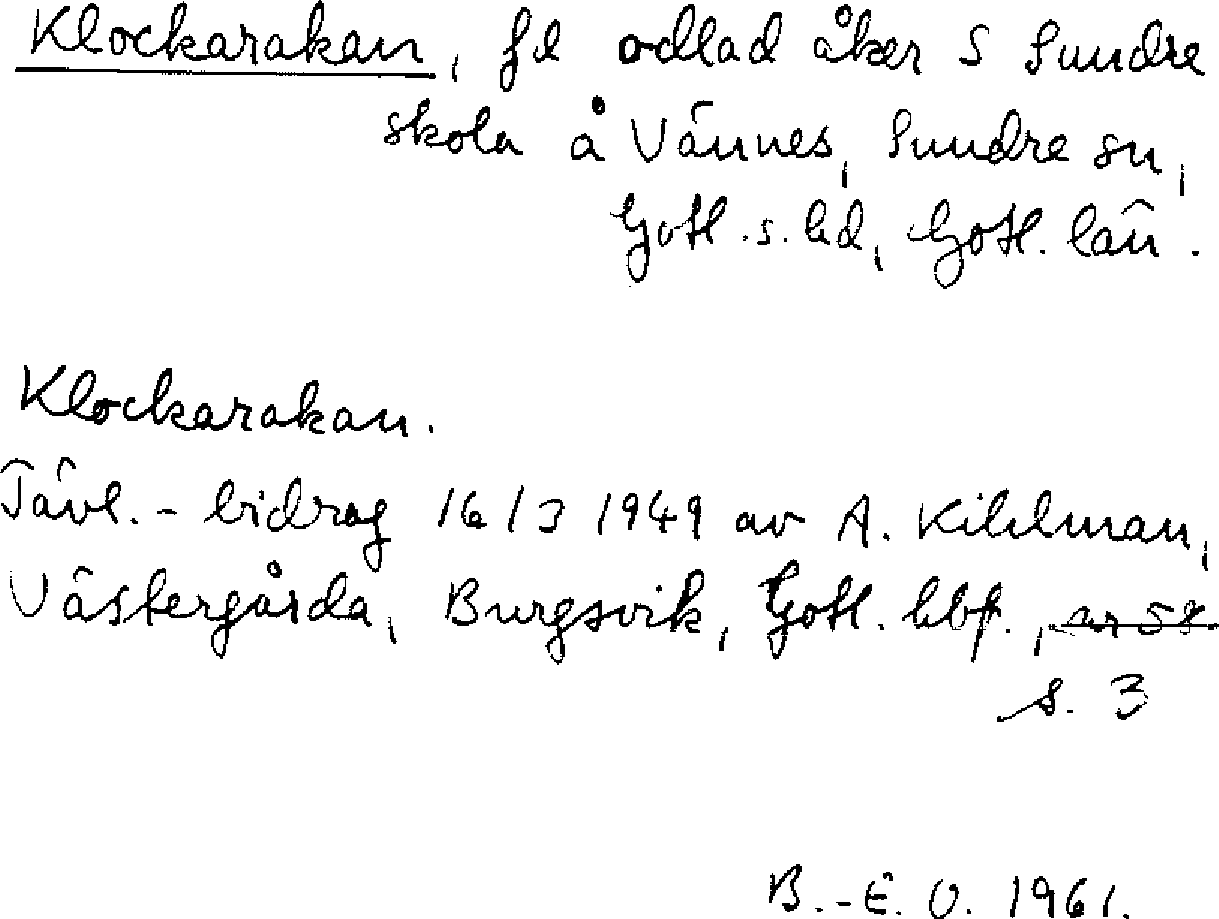 Klockarakan, fd odlad åker S Sundre
skola å Vännes, Sundre sn,
Gotl.s.hd, Gotl. län.
Klockarakan.
Tävl.-bidrag 16/3 1949 av A. Kihlman,
Västergårda, Burgsvik, Gotl. hbf., nr 58
s. 3
B.-E. O. 1961.